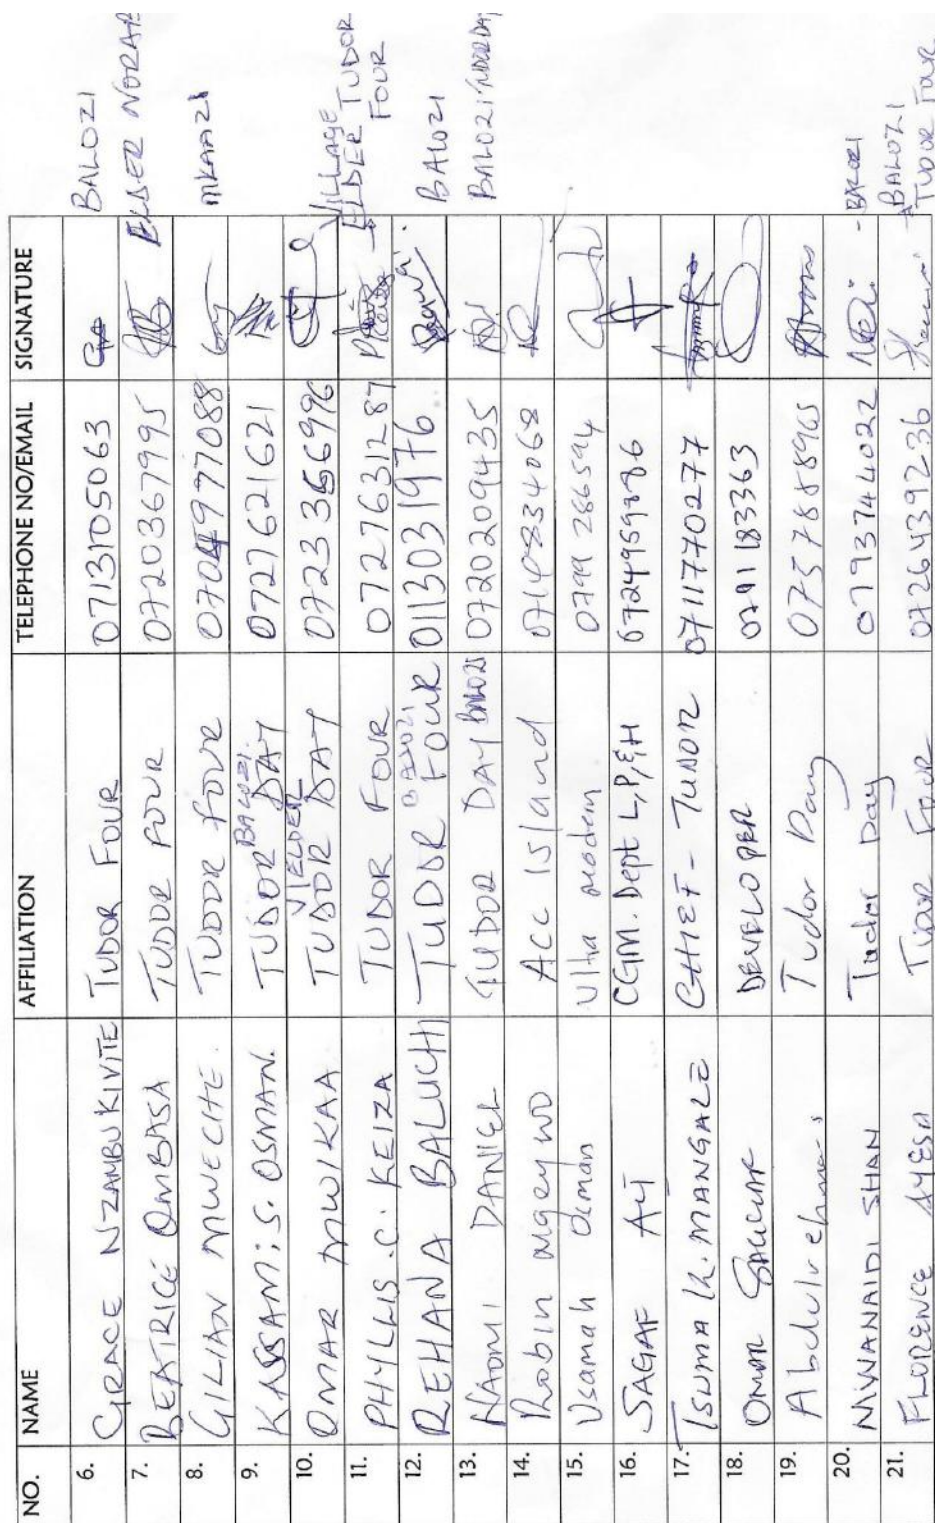 NO. NAME AFFILIATION TELEPHONE NO/EMAIL SIGNATURE
6. GRACE NZAMBU KIVITE TUDOR FOUR 0713105063 BALOZI
7. BEATRICE OMBASA TUDOR FOUR 0720367995 ELDER
8. GILIAN MWECHE TUDOR FOUR 0704977088 MKAAZI
9. KASSAM; S. OSMAN. TUDOR DAY BALOZI. 0727621621
10. OMAR MWIKAA TUDOR DAY V ELDER 0723366996
11. PHYLLIS. C. KEIZA TUDOR FOUR 0727631287 VILLAGE ELDER TUDOR FOUR
12. REHANA BALUCHI TUDOR FOUR BALOZI 0113031976 BALOZI
13. NAOMI DANIEL TUDOR DAY BALOZI 0720209435 BALOZI
14. Robin Acc Island 0714834068
15. Usamah Osman Ultra modern 0799286594
16. SAGAF CGM. Dept L,P,&H
17. TSUMA K. MANGALE CHIEF - TUDOR 0711770277
18. OMAR DEVELOPER 0791183363
19. Tudor Day
20. MWANAIDI SHAN Tudor Day 0793744022 - BALOZI
21. FLORENCE AYESA TUDOR FOUR 0726439236 BALOZI TUDOR FOUR